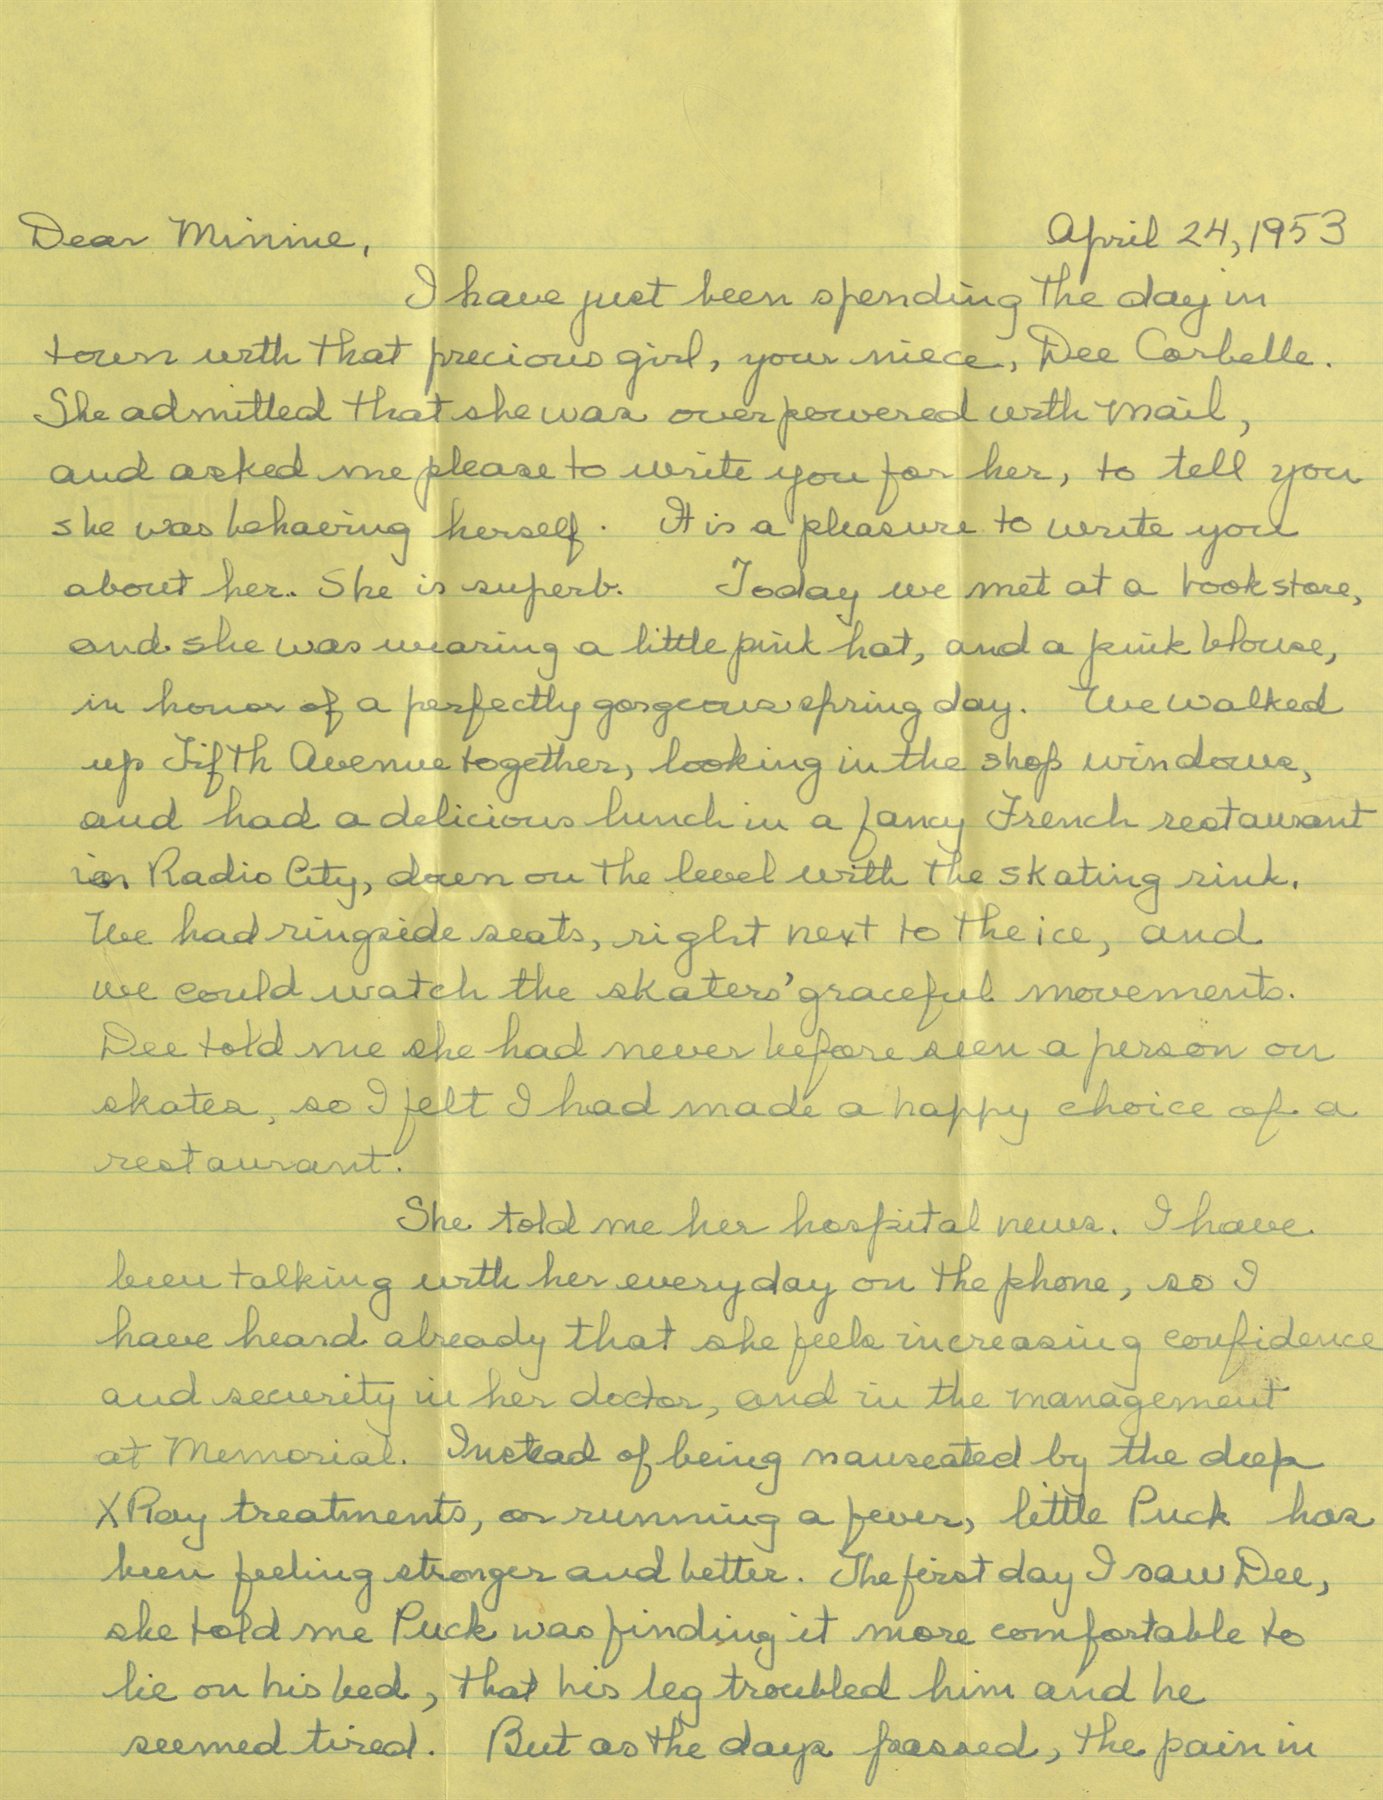 Dear Minine,
April 24, 1953
I have just been spending the day in
town with that precious girl, your niece, Dee Corbelle.
She admitted that she was overpowered with mail,
and asked me please to write you for her, to tell you
she was behaving herself. It is a pleasure to write you
about her. She is superb. Today we met at a book store,
and she was wearing a little pink hat, and a pink blouse,
in honor of a perfectly gorgeous spring day. We walked
up Fifth Avenue together, looking in the shop windows,
and had a delicious lunch in a fancy French restaurant
in Radio City, down on the level with the skating rink.
We had ringside seats, right next to the ice, and
we could watch the skaters' graceful movements.
Dee told me she had never before seen a person on
skates, so I felt I had made a happy choice of a
restaurant.
She told me her hospital news. I have
been talking with her every day on the phone, so I
have heard already that she feels increasing confidence
and security in her doctor, and in the management
at Memorial. Instead of being nauseated by the deep
X Ray treatments, or running a fever, little Puck has
been feeling stronger and better. The first day I saw Dee,
she told me Puck was finding it more comfortable to
lie on his bed, that his leg troubled him and he
seemed tired. But as the days passed, the pain in